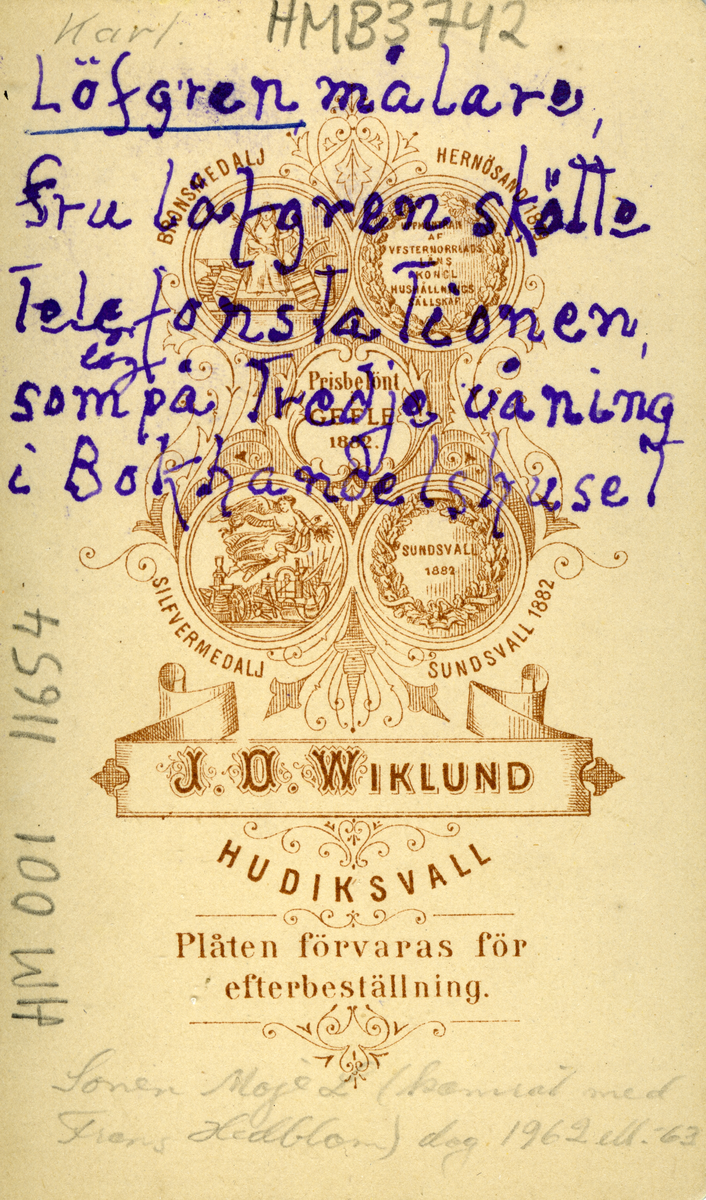 Karl. HMB3742
Löfgren målare,
fru Löfgren skötte
Telefonstationen,
låg
som på Tredje våning
i Bokhandelshuset
BRONSMEDALJ
HERNÖSAND
AF
VESTERNORRLANDS
LÄNS
KONGL
HUSHÅLLNINGS
SÄLLSKAP.
Prisbelönt
GEFLE
1882.
SUNDSVALL
1882
SILFVERMEDALJ
SUNDSVALL 1882
J. O. WIKLUND
HUDIKSVALL
Plåten förvaras för
efterbeställning.
Sonen Moje L (kamrat med
Frans Hedblom) dog 1962 ell. -63
HM 001 11654